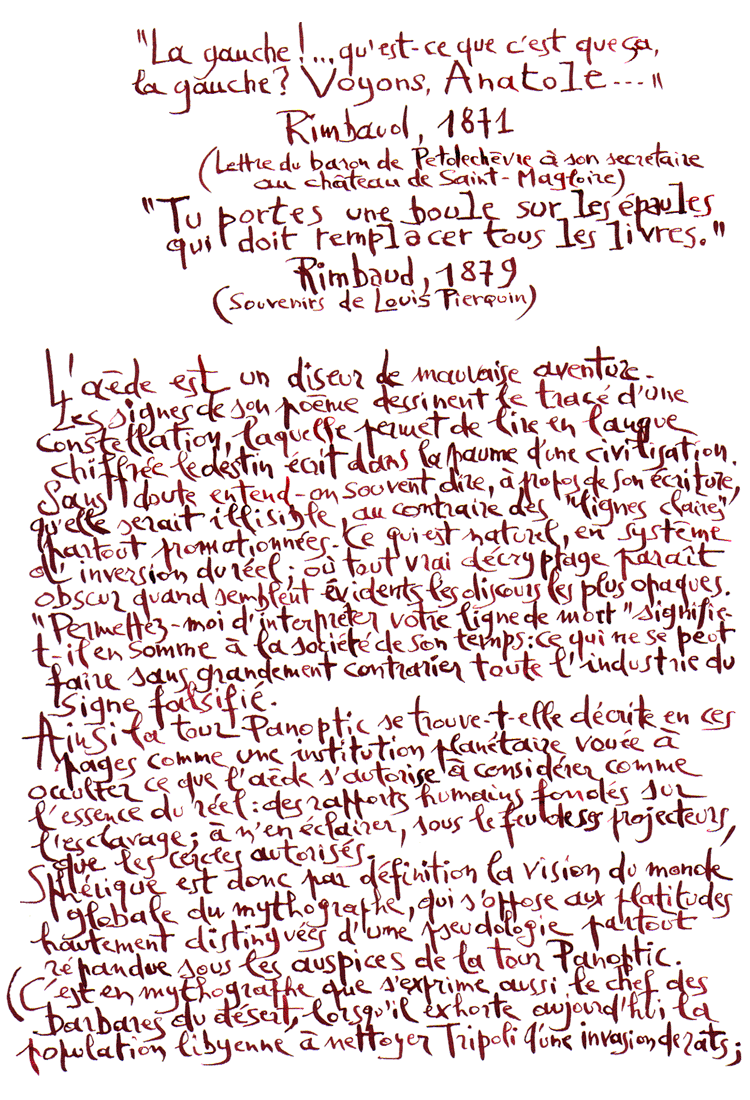 "La gauche !... qu'est-ce que c'est que ça,
la gauche ? Voyons, Anatole ---"
Rimbaud, 1871
(Lettre du baron de Petdechèvre à son secrétaire
au château de Saint-Magloire)
"Tu portes une boule sur les épaules
qui doit remplacer tous les livres."
Rimbaud, 1879
(Souvenirs de Louis Pierquin)
L'aède est un diseur de mauvaise aventure.
Les signes de son poème dessinent le tracé d'une
constellation, laquelle permet de lire en langue
chiffrée le destin écrit dans la paume d'une civilisation.
Sans doute entend-on souvent dire, à propos de son écriture,
qu'elle serait illisible, au contraire des "lignes claires"
partout promotionnées. Ce qui est naturel, en système
d'inversion du réel ; où tout vrai décryptage paraît
obscur quand semblent évidents les discours les plus opaques.
"Permettez-moi d'interpréter votre ligne de mort" signifie-
t-il en somme à la société de son temps : ce qui ne se peut
faire sans grandement contrarier toute l'industrie du
signe falsifié.
Ainsi la tour Panoptic se trouve-t-elle décrite en ces
pages comme une institution planétaire vouée à
occulter ce que l'aède s'autorise à considérer comme
l'essence du réel : des rapports humains fondés sur
l'esclavage ; à n'en éclairer, sous le feu de ses projecteurs,
que les cercles autorisés.
Sphérique est donc par définition la vision du monde
globale du mythographe, qui s'oppose aux platitudes
hautement distinguées d'une pseudologie partout
répandue sous les auspices de la tour Panoptic.
(C'est en mythographe que s'exprime aussi le chef des
barbares du désert, lorsqu'il exhorte aujourd'hui la
population libyenne à nettoyer Tripoli d'une invasion de rats ;